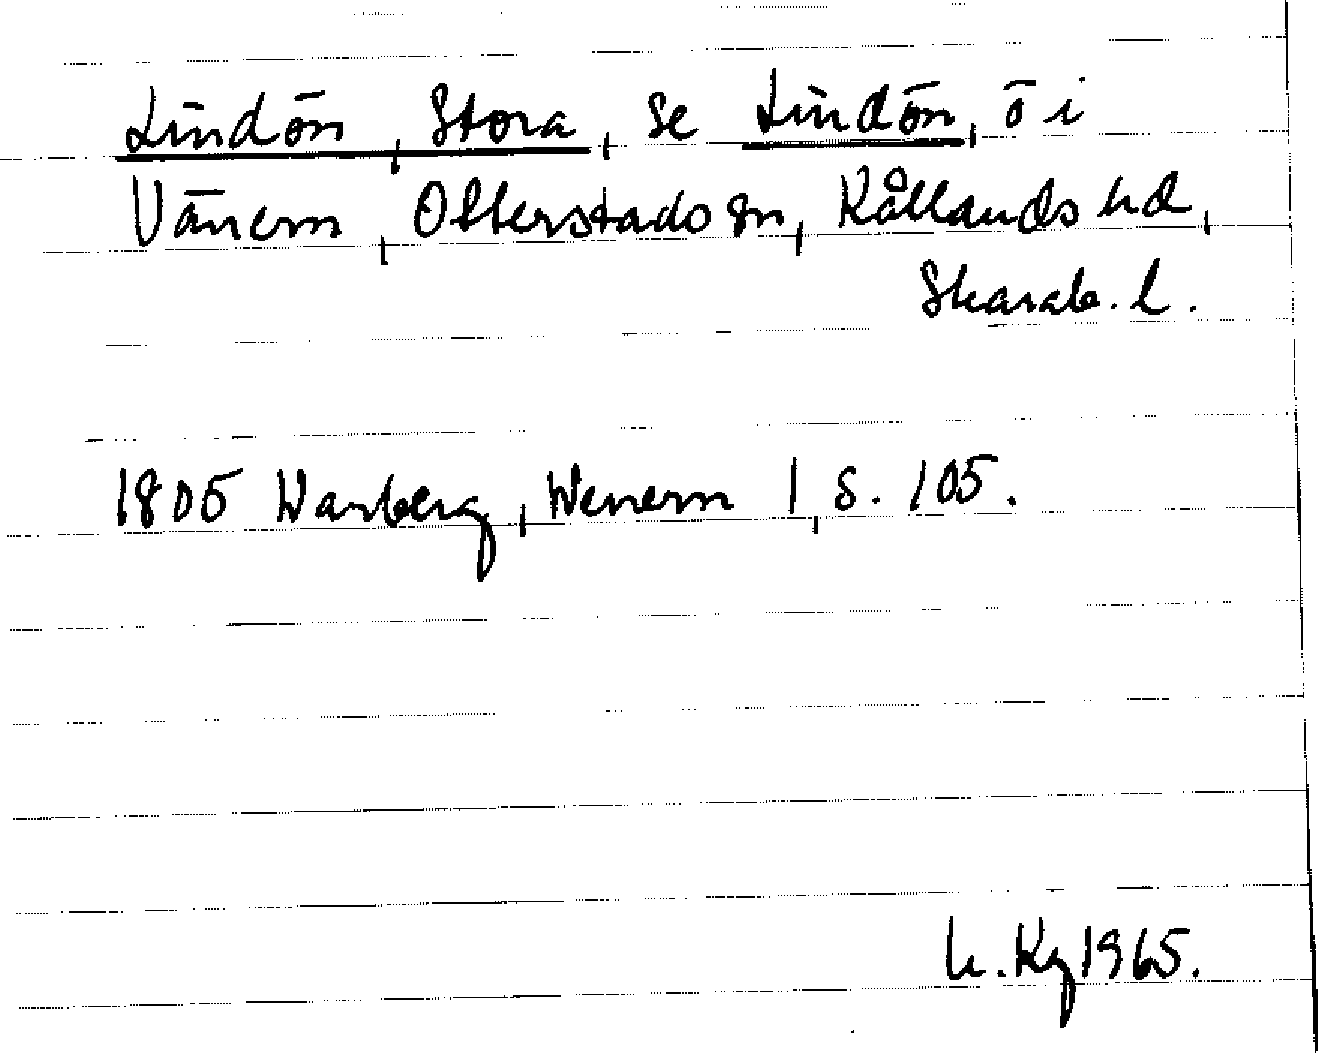 Lindön, Stora, se Lindön, ö i
Vänern, Otterstads sn, Kållands hd,
Skarab. l.
1805 Warberg, Wenern 1, s. 105.
h. Kg 1965.